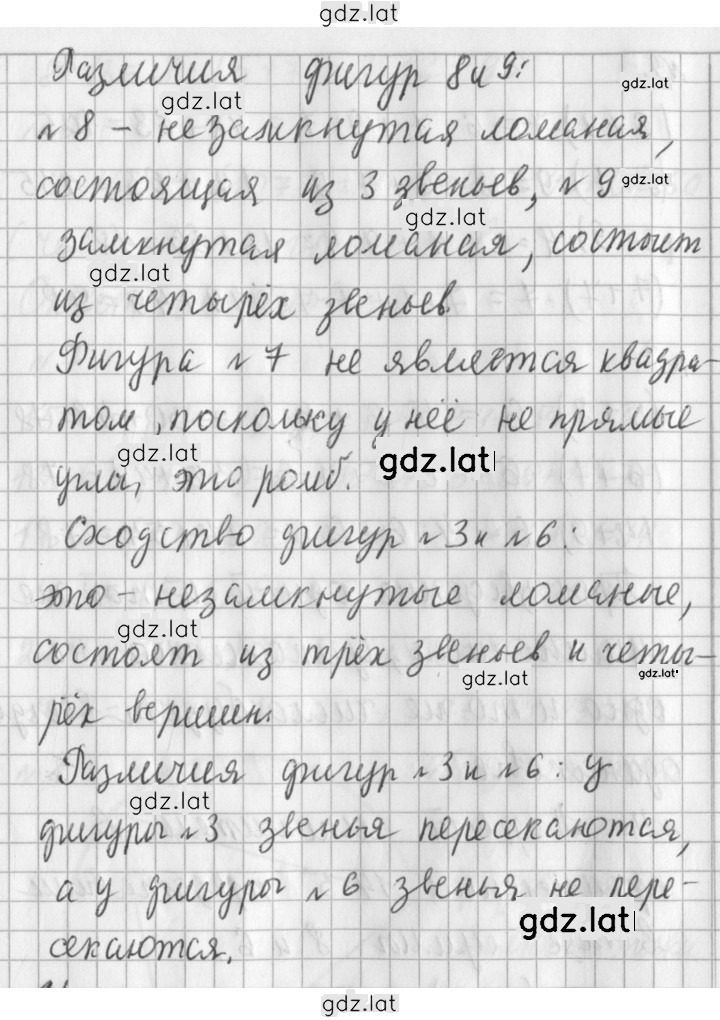 gdz.lat
Различия фигур 8 и 9:
gdz.lat gdz.lat
№ 8 - незамкнутая ломаная,
состоящая из 3 звеньев, № 9 gdz.lat
gdz.lat
замкнутая ломаная, состоит
gdz.lat
из четырёх звеньев.
Фигура № 7 не является квадра-
том, поскольку у неё не прямые
gdz.lat gdz.lat
углы, это ромб.
Сходство фигур № 3 и № 6:
это - незамкнутые ломаные,
gdz.lat
состоят из трёх звеньев и четы-
gdz.lat gdz.lat
рёх вершин.
Различия фигур № 3 и № 6: у
gdz.lat
фигуры № 3 звенья пересекаются,
а у фигуры № 6 звенья не пере-
gdz.lat
секаются.
gdz.lat